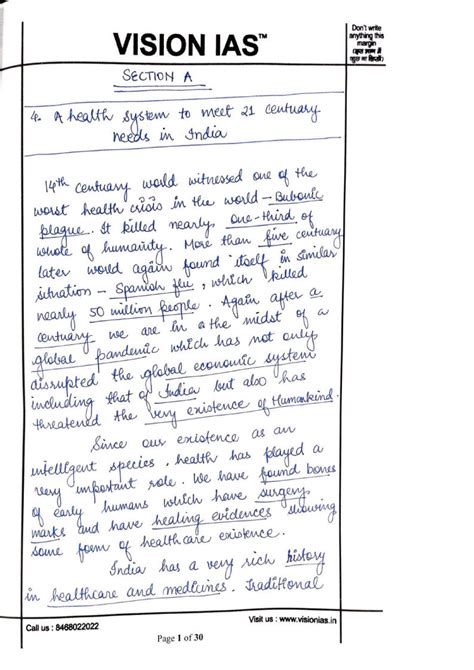 VISION IAS™
Don't write
anything this
margin
(इस भाग में
कुछ ना लिखें)
SECTION A
4. A health system to meet 21 centuary
needs in India
14th centuary world witnessed one of the
worst health crisis in the world – Bubonic
plague. It killed nearly one-third of
whole of humanity. More than five centuary
later world again found itself in similar
situation – Spanish flu, which killed
nearly 50 million people. Again after a
centuary we are in the midst of a
global pandemic which has not only
disrupted the global economic system
including that of India but also has
threatened the very existence of Humankind.
Since our existence as an
intelligent species, health has played a
very important role. We have found bones
of early humans which have surgery
marks and have healing evidences showing
some form of healthcare existence.
India has a very rich history
in healthcare and medicines. Traditional
Call us : 8468022022
Visit us : www.visionias.in
Page 1 of 30